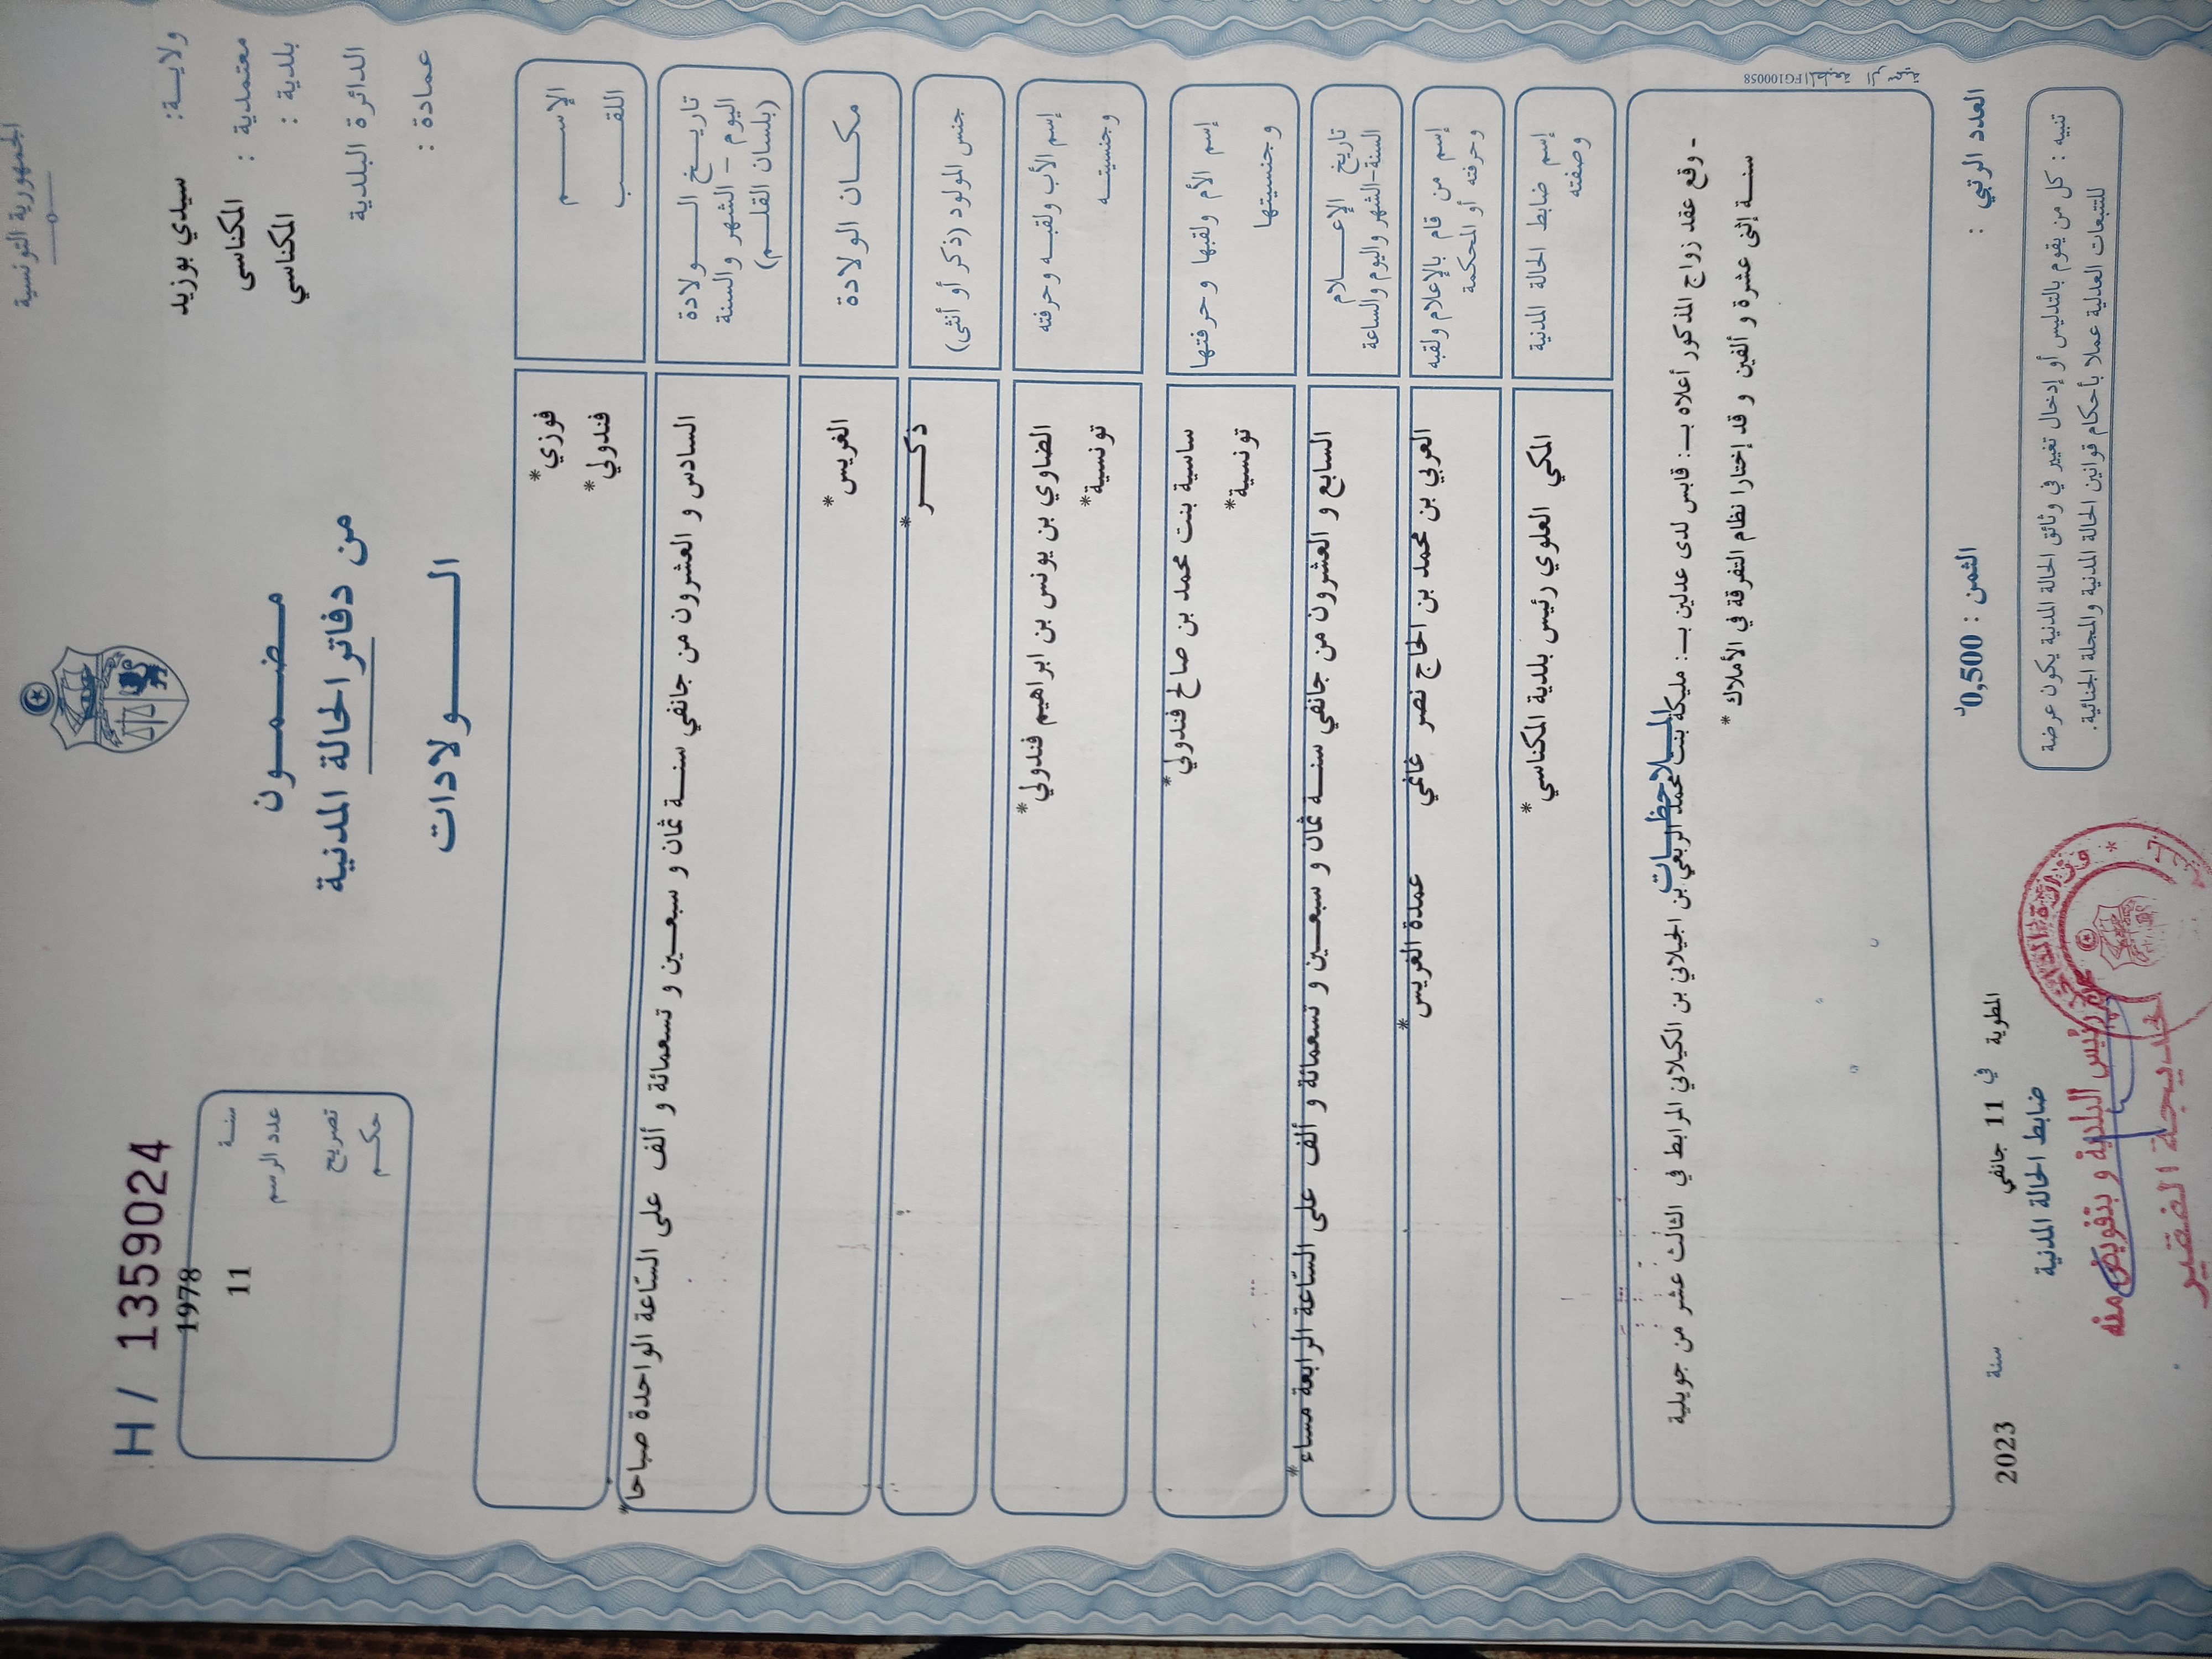 الجمهورية التونسية
ولايـــة: سيدي بوزيد
معتمدية : المكناسى
بلدية : المكناسي
الدائرة البلدية
عمادة :
مـضـمـــون
من دفاتر الحالة المدنية
الـــــولادات
H / 1359024
سنــة 1978
عدد الرسم 11
تصريح
حكــم
الإســـــم فوزي*
اللقـــــب فندولي*
تاريــخ الـــولادة
اليوم - الشهر والسنة
(بلسان القلــم)
السادس و العشرون من جانفي سنـــة ثمان و سبعــين و تسعمائة و ألف على السّاعة الواحدة صباحا*
مكـــان الولادة الغريس*
جنس المولود (ذكر أو أنثى) ذكـــــر*
إسم الأب ولقبــه وحرفته الضاوي بن يونس بن ابراهيم فندولي*
وجنسيتــه تونسية*
إسم الأم ولقبها وحرفتها ساسية بنت محمد بن صالح فندولي*
وجنسيتها تونسية*
تاريخ الإعـــــلام
السنة-الشهر واليوم والساعة
السابع و العشرون من جانفي سنـــة ثمان و سبعــين و تسعمائة و ألف على السّاعة الرابعة مساء*
إسم من قام بالإعلام ولقبه
وحرفته أو المحكمة
العربي بن محمد بن الحاج نصر غانمي عمدة الغريس*
إسم ضابط الحالة المدنية
وصفته
المكي العلوي رئيس بلدية المكناسي*
المـــلاحظـــات
- وقع عقد زواج المذكور أعلاه بــ: قابس لدى عدلين بــ: مليكة بنت محمد الربعي بن الجيلاني بن الكيلاني المرابط في الثالث عشر من جويلية
سنـــة إثنى عشرة و ألفين و قد إختارا نظام التفرقة في الأملاك *
العدد الرتبي :
الثمن : 0,500د
المطوية في 11 جانفي سنة 2023
ضابط الحالة المدنية
تنبيه : كل من يقوم بالتدليس أو إدخال تغيير في وثائق الحالة المدنية يكون عرضة
للتتبعات العدلية عملا بأحكام قوانين الحالة المدنية والمجلة الجنائية.
عن رئيس البلدية و بتفويض منه
خديجة الفقير